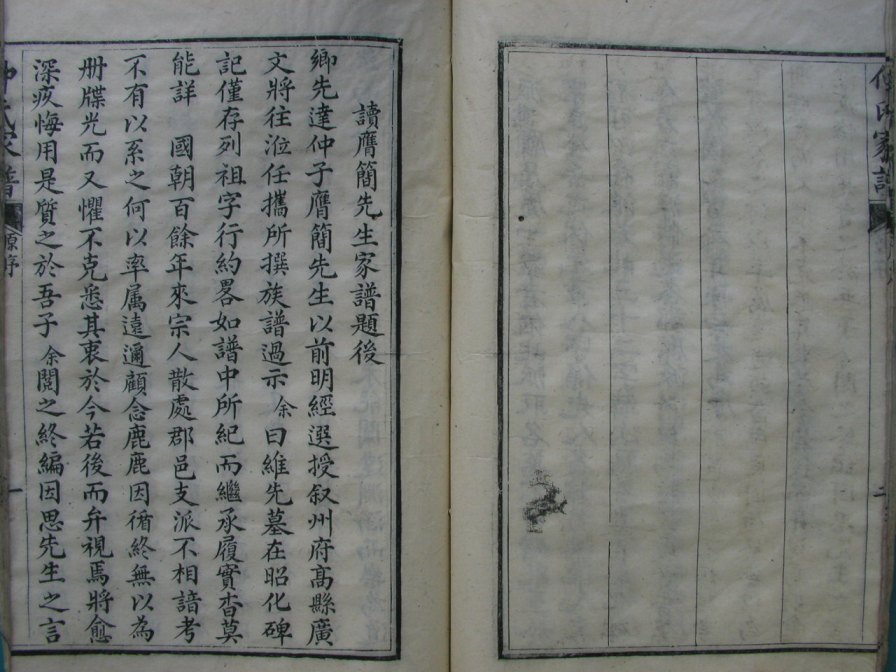 讀膺簡先生家譜題後
鄉先達仲子膺簡先生以前明經選授叙州府高縣廣
文將往涖任攜所撰族譜過示余曰維先墓在昭化碑
記僅存列祖字行約畧如譜中所紀而繼承履實杳莫
能詳 國朝百餘年來宗人散處郡邑支派不相諳考
不有以系之何以率属遠邇顧念鹿鹿因循終無以為
冊牒光而又懼不克悉其衷於今若後而弁視焉將愈
深疚悔用是質之於吾子余閱之終編因思先生之言
仲氏家譜 原序 一